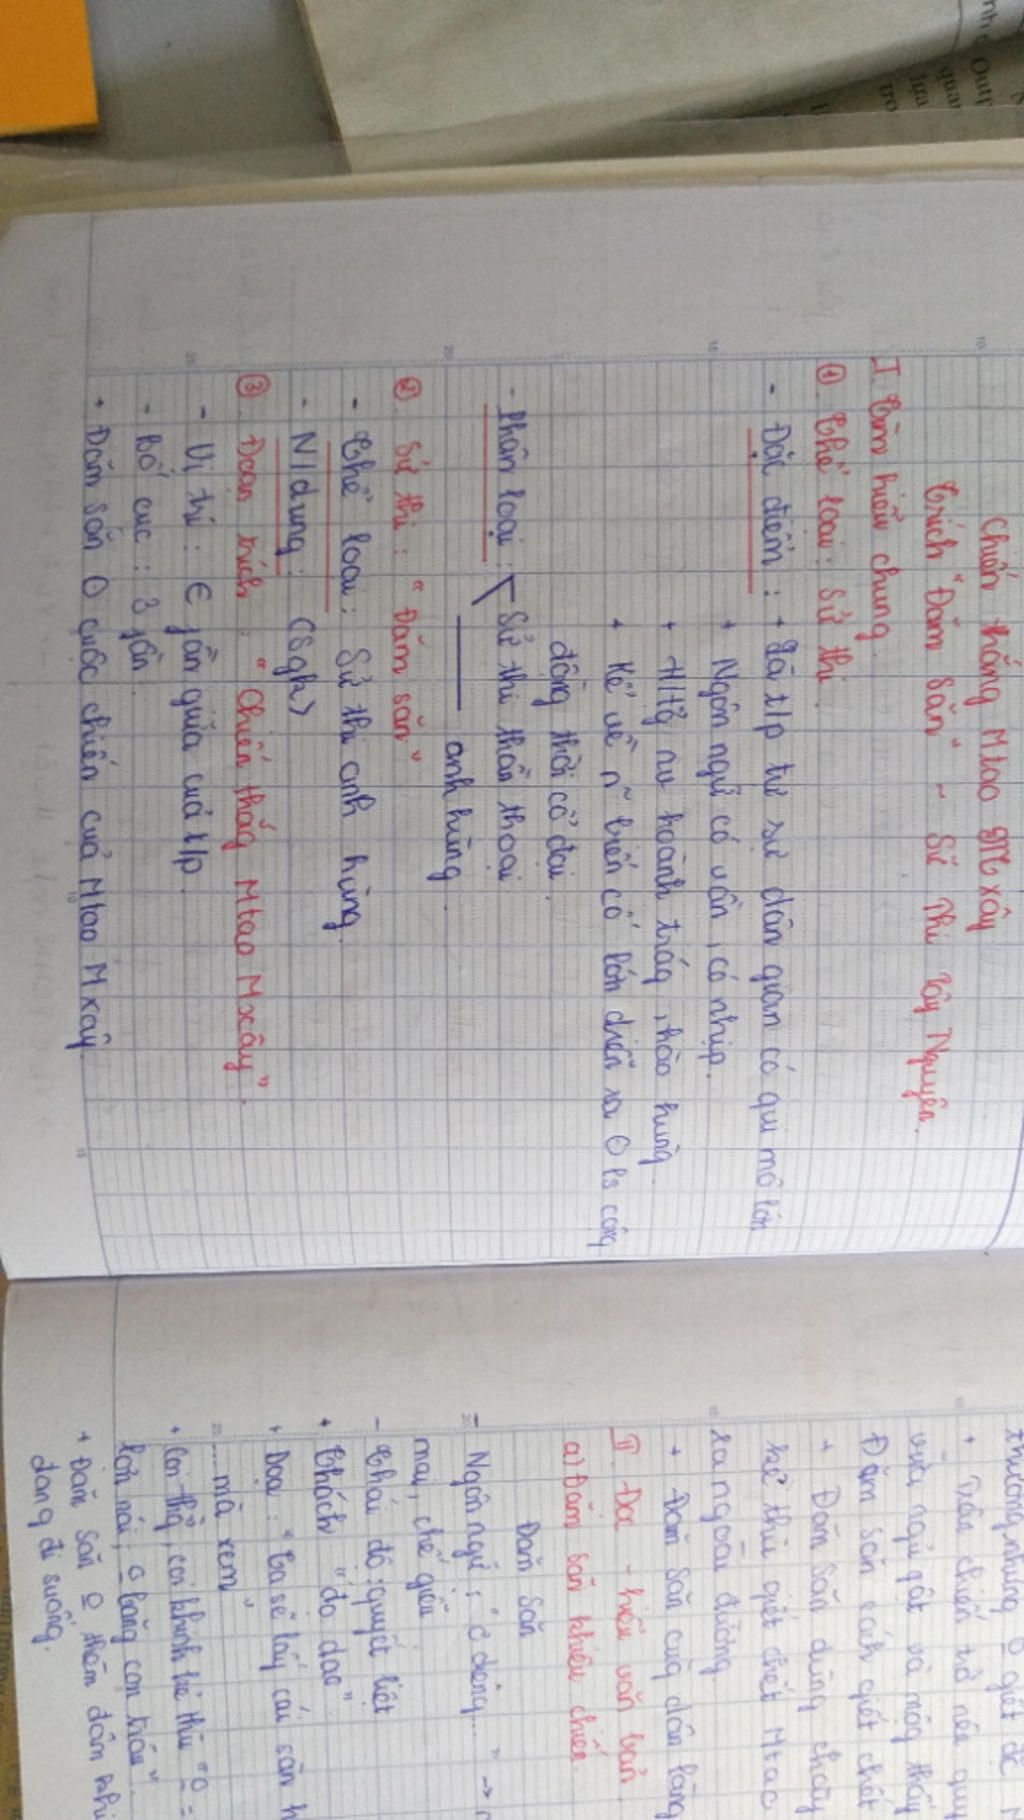 Chiến thắng Mtao Mxây
Trích "Đăm Săn" - Sử thi Tây Nguyên.
I. Tìm hiểu chung.
① Thể loại: Sử thi.
- Đặc điểm: + Là t/p tự sự dân gian có qui mô lớn
+ Ngôn ngữ có vần, có nhịp.
+ H/tg nv hoành tráng, hào hùng.
+ Kể về n~ biến cố lớn diễn ra Θ l/s cộng
đồng thời cổ đại.
- Phân loại: Sử thi thần thoại
anh hùng.
② Sử thi: "Đăm Săn"
- Thể loại: Sử thi anh hùng.
- N/dung: (sgk)
③ Đoạn trích: "Chiến thắng Mtao Mxây".
- Vị trí: Є fần giữa của t/p.
- Bố cục: 3 fần.
+ Đăm Săn Θ cuộc chiến của Mtao Mxây.
thương, nhưng giết đc
+ Trận chiến
vừa ngủ gật và mộng thấy
Đăm Săn cách giết chết
+ Đăm Săn dùng chày
kẻ thù giết chết Mtao
ra ngoài đường.
+ Đăm Săn cùg dân làng
II. Đọc - hiểu văn bản
a) Đăm Săn khiêu chiến.
Đăm Săn
- Ngôn ngữ: "Ơ diêng..." →
mai, chế giễu
- Thái độ: quyết liệt
+ Thách "đọ dao"
+ Dọa: "Ta sẽ lấy cái sàn h
... mà xem"
+ Coi thg, coi khinh kẻ thù
lợn nái, o bằng con trâu"
+ Đăm Săn o thèm đâm khi
đang đi xuống.